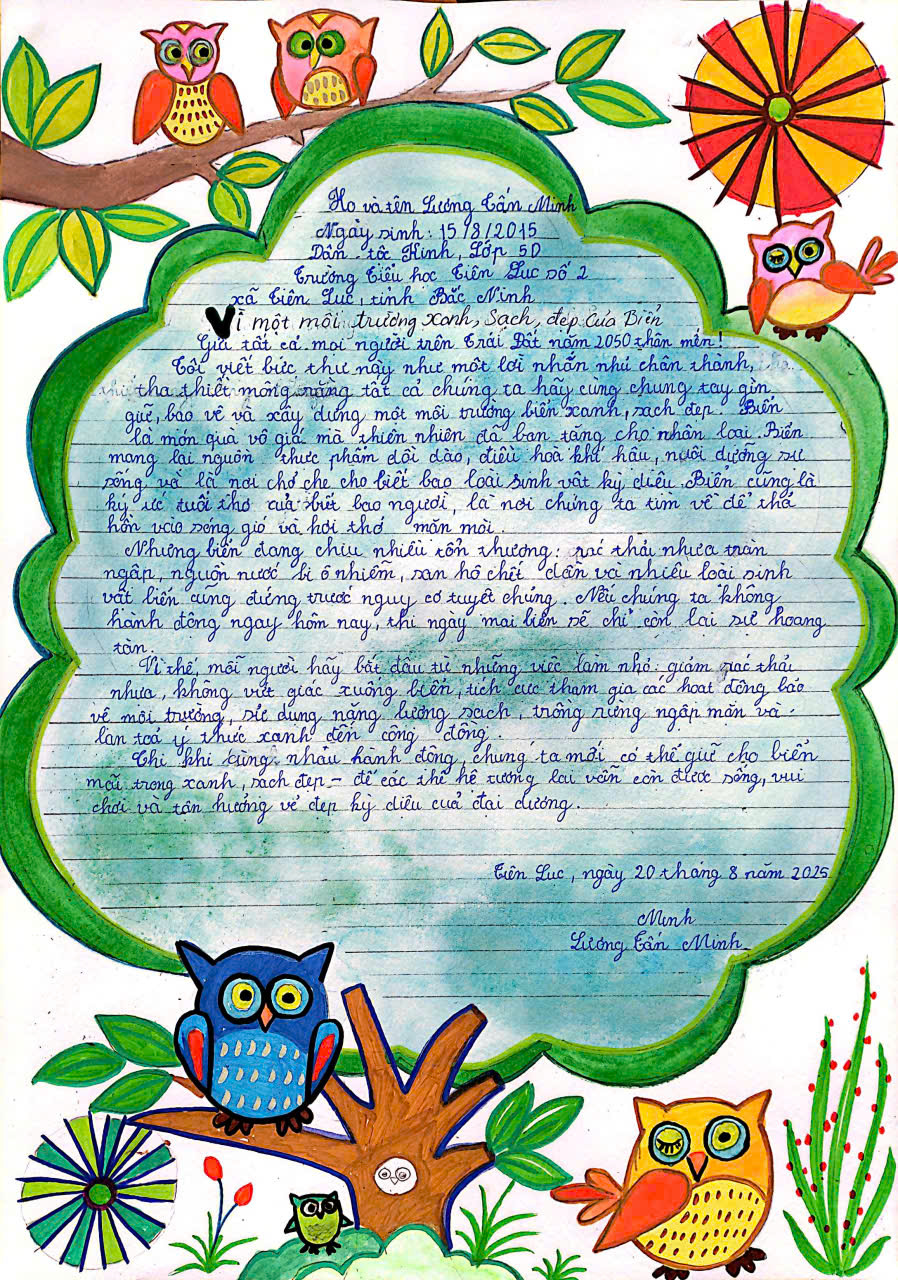 Họ và tên Lương Tấn Minh
Ngày sinh: 15/8/2015
Dân tộc Kinh, Lớp 5D
Trường Tiểu học Tiên Lục số 2
xã Tiên Lục, tỉnh Bắc Ninh
Vì một môi trường xanh, Sạch, đẹp Của Biển
Gửi tất cả mọi người trên Trái Đất năm 2050 thân mến!
Tôi viết bức thư này như một lời nhắn nhủ chân thành,
tha thiết mong rằng tất cả chúng ta hãy cùng chung tay gìn
giữ, bảo vệ và xây dựng một môi trường biển xanh, sạch đẹp. Biển
là món quà vô giá mà thiên nhiên đã ban tặng cho nhân loại. Biển
mang lại nguồn thực phẩm dồi dào, điều hoà khí hậu, nuôi dưỡng sự
sống và là nơi chở che cho biết bao loài sinh vật kỳ diệu. Biển cũng là
ký ức tuổi thơ của biết bao người, là nơi chúng ta tìm về để thả
hồn vào sóng gió và hơi thở mặn mòi.
Nhưng biển đang chịu nhiều tổn thương: rác thải nhựa tràn
ngập, nguồn nước bị ô nhiễm, san hô chết dần và nhiều loài sinh
vật biển cũng đứng trước nguy cơ tuyệt chủng. Nếu chúng ta không
hành động ngay hôm nay, thì ngày mai biển sẽ chỉ còn lại sự hoang
tàn.
Vì thế, mỗi người hãy bắt đầu từ những việc làm nhỏ: giảm rác thải
nhựa, không vứt giác xuống biển, tích cực tham gia các hoạt động bảo
vệ môi trường, sử dụng năng lượng sạch, trồng rừng ngập mặn và
lan toả ý thức xanh đến cộng đồng.
Chỉ khi cùng nhau hành động, chúng ta mới có thể giữ cho biển
mãi trong xanh, sạch đẹp - để các thế hệ tương lai vẫn còn được sống, vui
chơi và tận hưởng vẻ đẹp kỳ diệu của đại dương.
Tiên Lục, ngày 20 tháng 8 năm 2025
Minh
Lương Tấn Minh